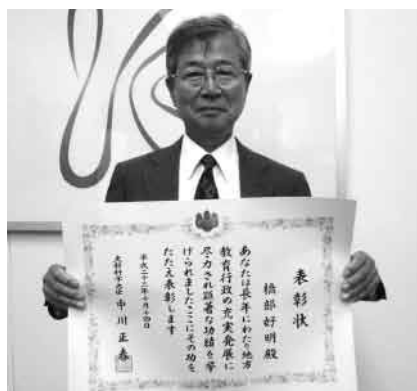 表彰状
橋部好明殿
あなたは長年にわたり地方
教育行政の充実発展に
尽力され顕著な功績を挙
げられましたここにその功を
たたえ表彰します
平成二十三年十月十四日
文部科学大臣 中川正春